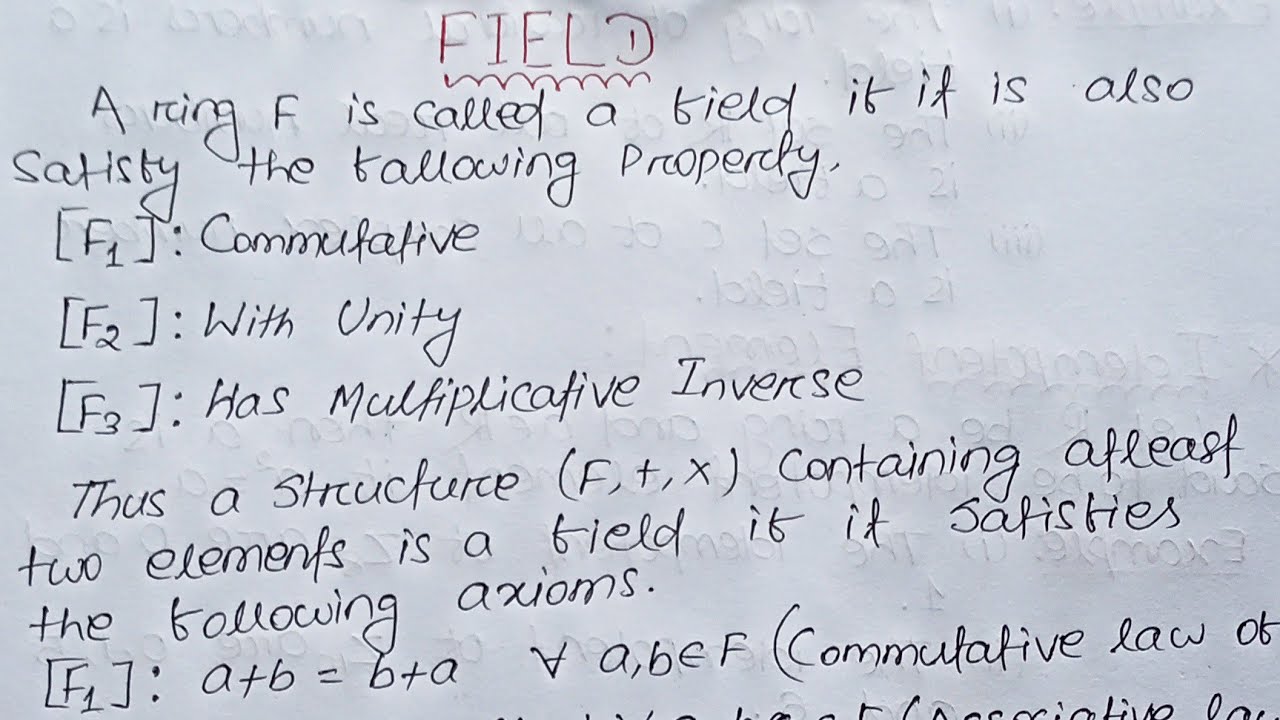 FIELD
A ring F is called a field if it is also
Satisfy the following Property.
[F1]: Commutative
[F2]: With Unity
[F3]: Has Multiplicative Inverse
Thus a Structure (F, +, ×) Containing atleast
two elements is a field if it satisfies
the following axioms.
[F1]: a+b = b+a ∀ a,b∈F (Commutative law of
(Associative la